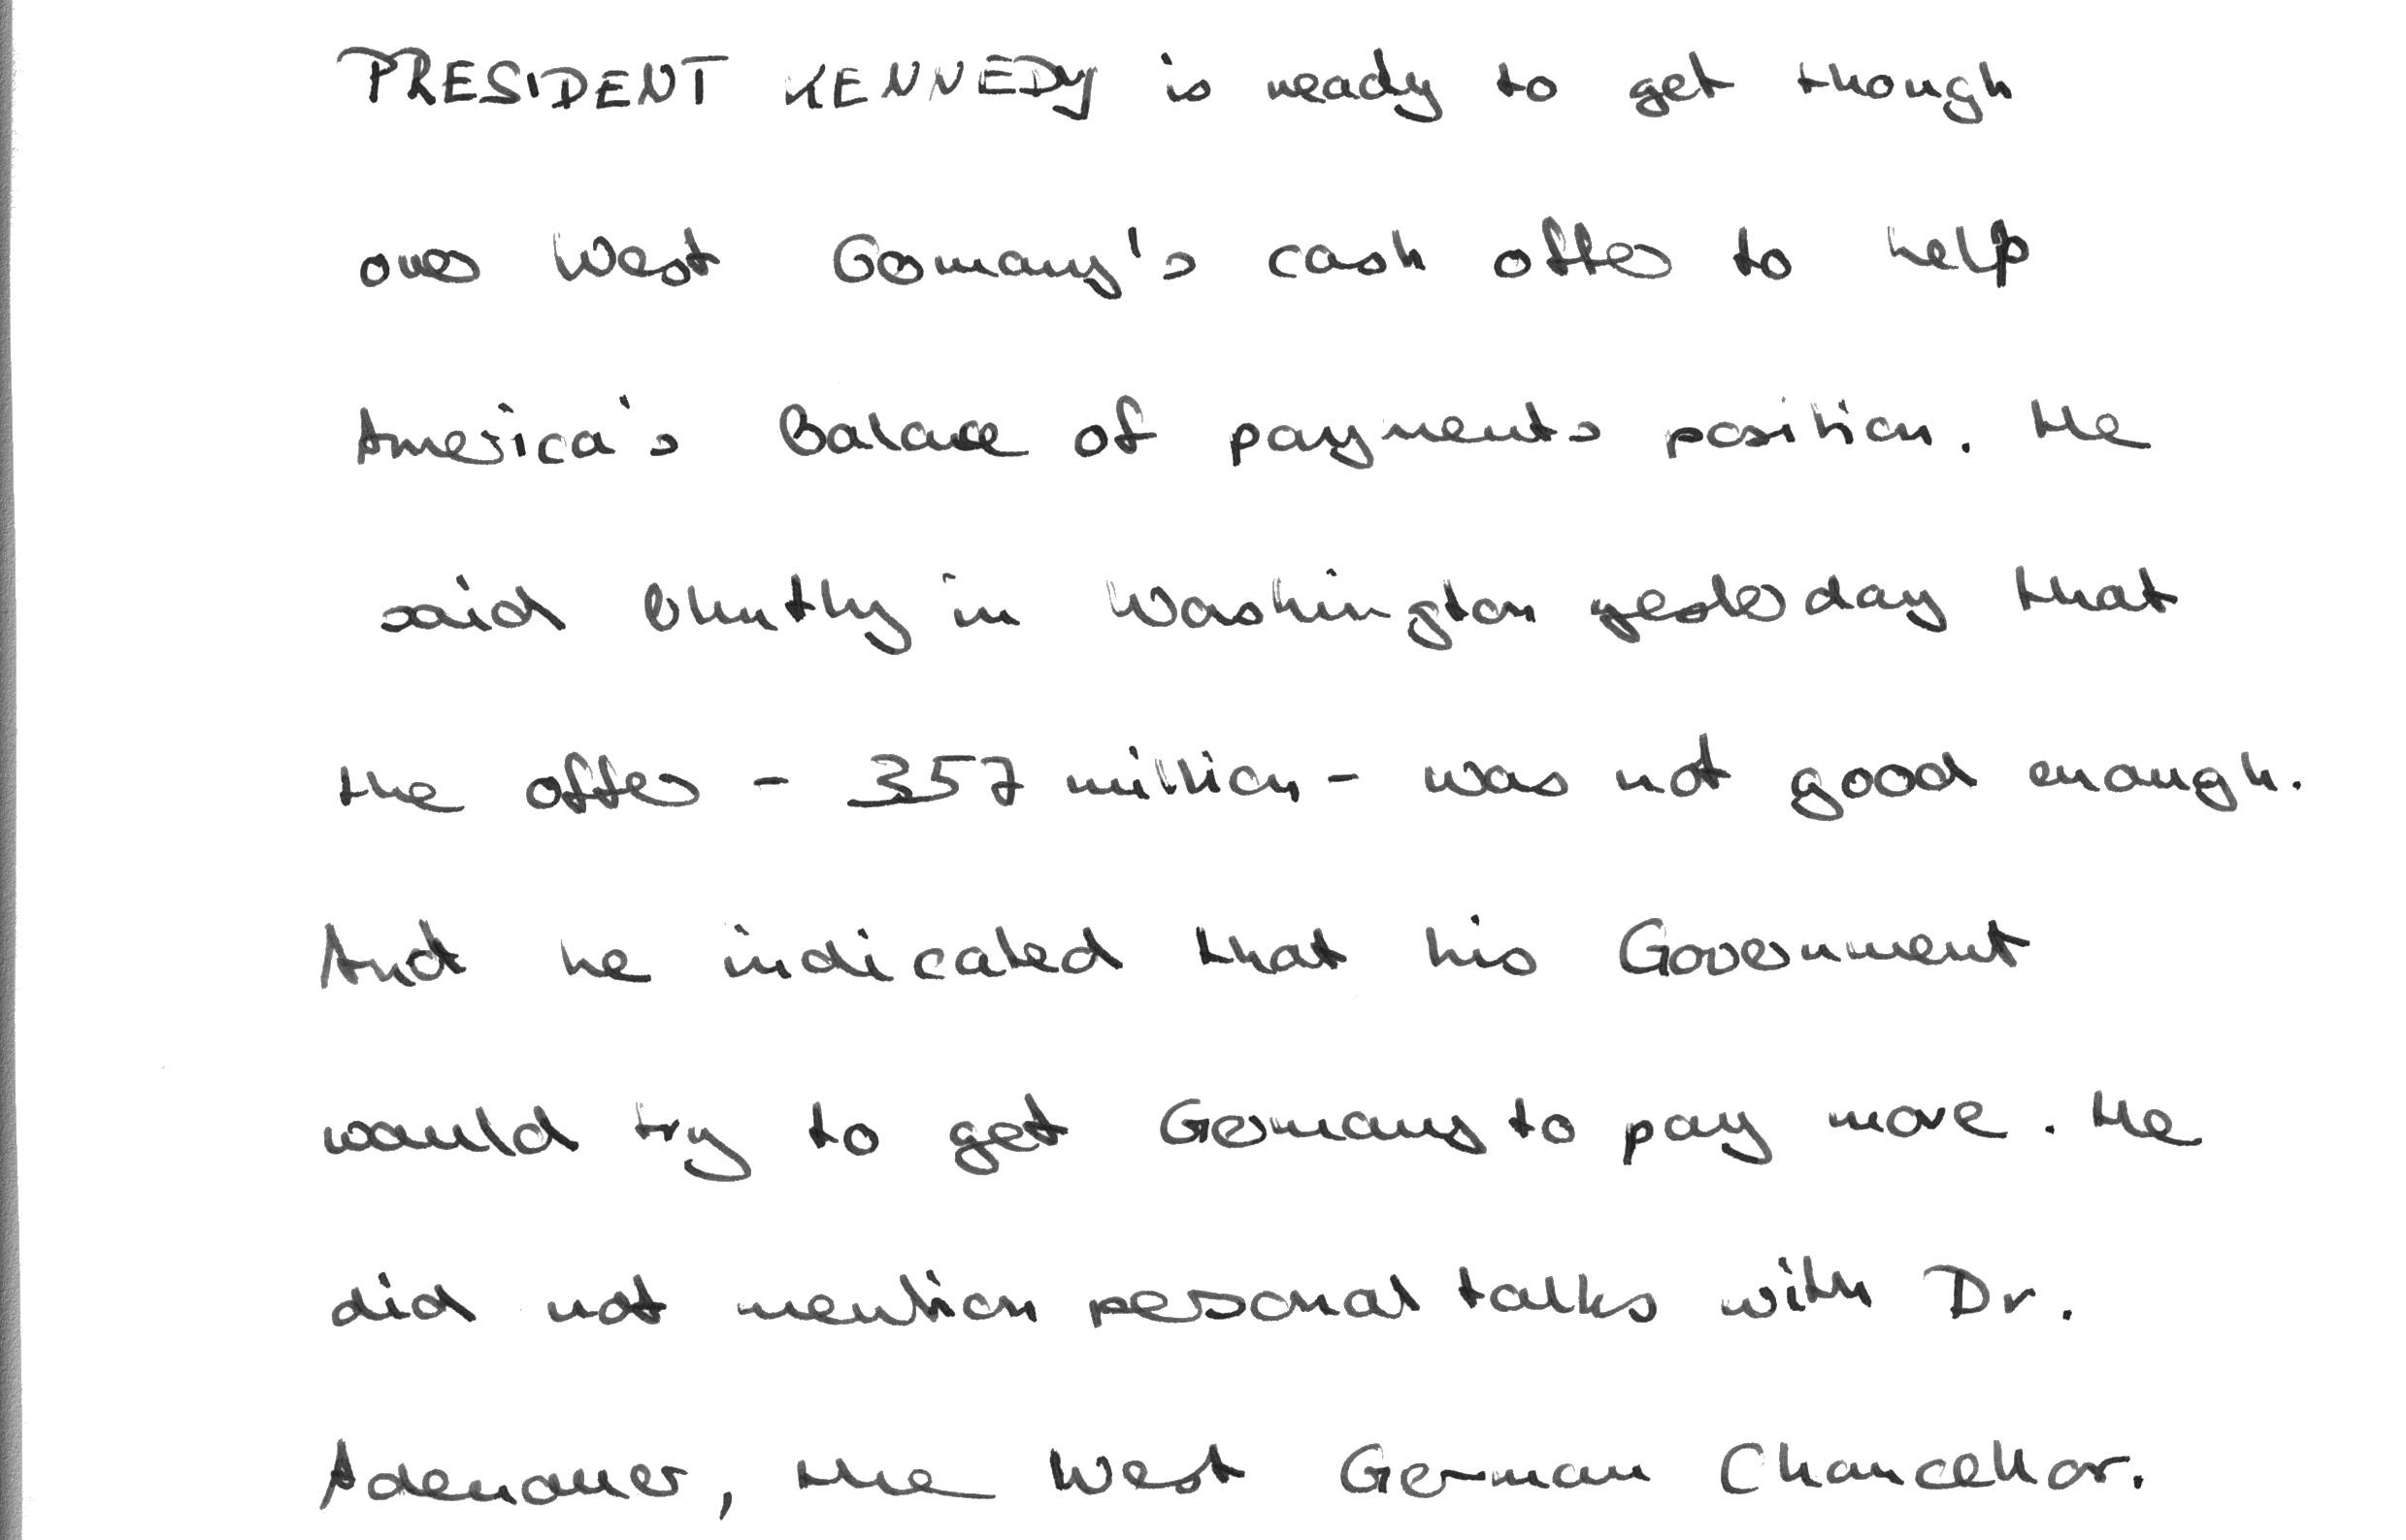 PRESIDENT KENNEDY is ready to get though
over West Germany's cash offer to help
America's Balance of payments position. He
said bluntly in Washington yesterday that
the offer - 357 million - was not good enough.
And he indicated that his Government
would try to get Germany to pay more. He
did not mention personal talks with Dr.
Adenauer, the West German Chancellor.